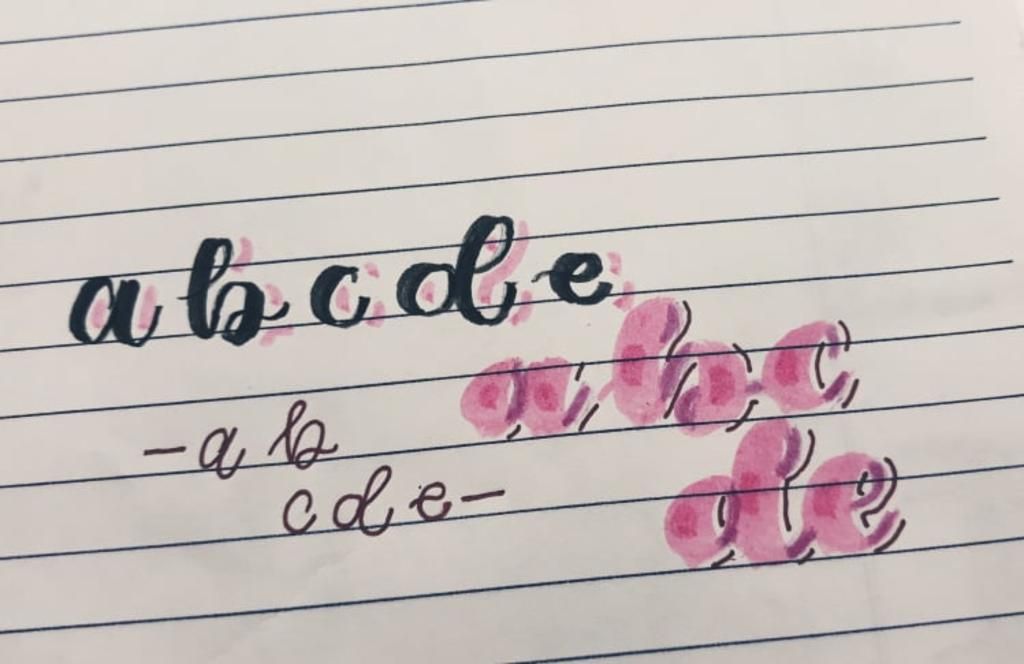 a b c d e
a b c
d e
- a b
c d e -